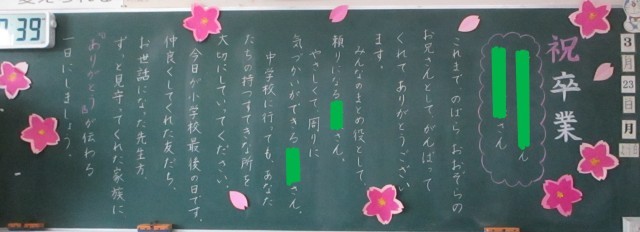 祝卒業
さん
さん
これまで、のばら、おおぞらの
お兄さんとして、がんばって
くれてありがとうござい
ます。
みんなのまとめ役として、
頼りになる さん。
やさしくて、周りに
気づかいができる さん。
中学校に行っても、あなた
たちの持つすてきな所を
大切にしていてください。
今日が小学校最後の日です。
仲良くしてくれた友だち、
お世話になった先生方、
ずっと見守ってくれた家族に
"ありがとう"が伝わる
一日にしましょう。
3
月
23
日
月
7:39